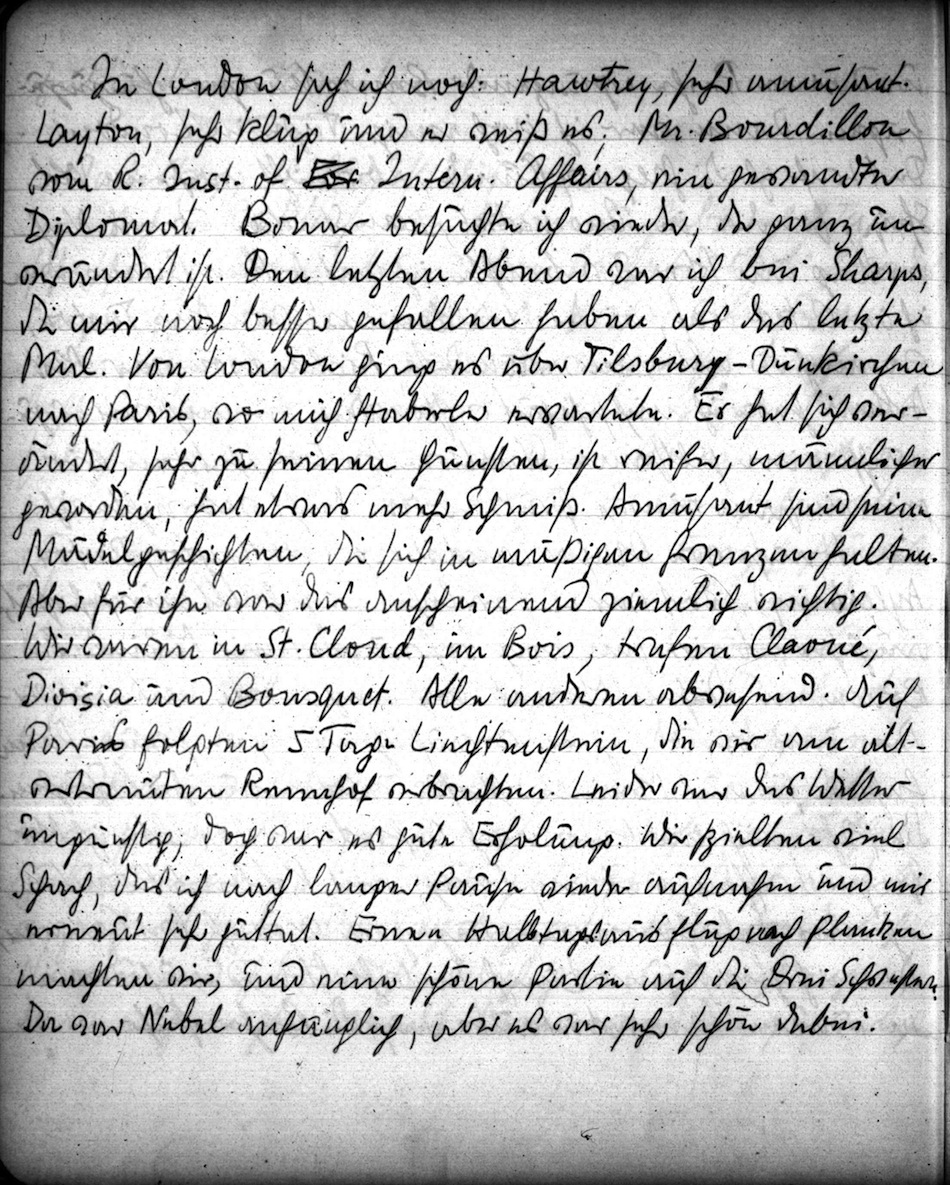 In London sah ich noch: Hawtrey, sehr amüsant.
Layton, sehr klug und er weiß es; Mr. Bourdillon
vom R. Inst. of For Intern. Affairs, ein gewandter
Diplomat. Bonar besuchte ich wieder, der ganz un-
verändert ist. Den letzten Abend war ich bei Sharps,
die mir noch besser gefallen haben als das letzte
Mal. Von London ging es über Tilsbury – Dünkirchen
nach Paris, wo mich Haberler erwartete. Er hat sich ver-
ändert, sehr zu seinen Gunsten, ist reifer, männlicher
geworden, hat etwas mehr Schmiß. Amüsant sind seine
Mädelgeschichten, die sich in mäßigen Grenzen halten.
Aber für ihn war das anscheinend ziemlich wichtig.
Wir waren in St. Cloud, im Bois, trafen Claoué,
Divisia und Bousquet. Alle anderen abwesend. Auf
Paris folgten 5 Tage Liechtenstein, die wir am alt-
vertrauten Rennhof verbrachten. Leider war das Wetter
ungünstig, doch war es gute Erholung. Wir spielten viel
Schach, das ich nach langer Pause wieder aufnahm und mir
erneut sehr gefiel. Einen Halbtagsausflug nach Planken
machten wir, und eine schöne Partie auf die Drei Schwestern.
Da war Nebel anfänglich, aber es war sehr schön dabei.